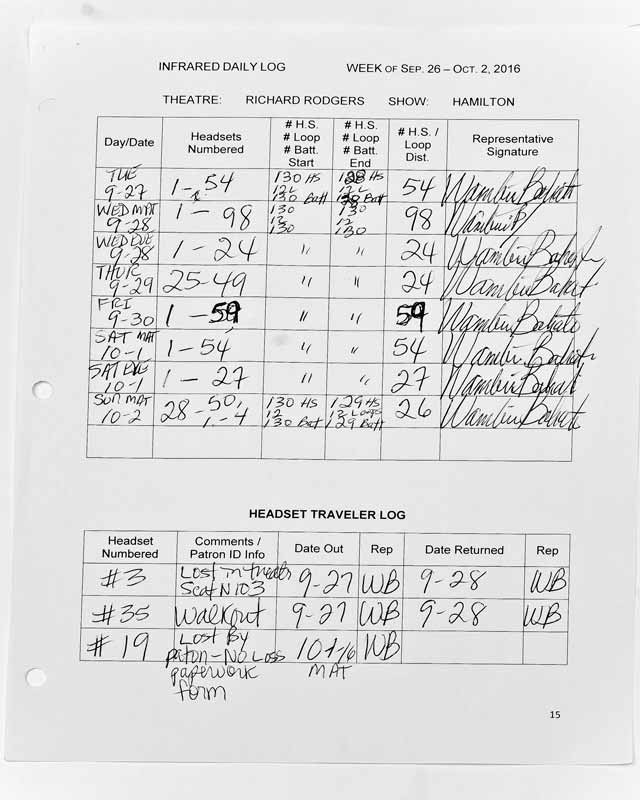 INFRARED DAILY LOG WEEK OF SEP. 26 – OCT. 2, 2016
THEATRE: RICHARD RODGERS SHOW: HAMILTON
Day/Date Headsets Numbered # H.S. # Loop # Batt. Start # H.S. # Loop # Batt. End # H.S. / Loop Dist. Representative Signature
TUE 9-27 1-54 130 HS 12 L 130 Batt 128 HS 12 L 128 Batt 54
WED MAT 9-28 1-98 130 12 130 130 12 130 98
WED EVE 9-28 1-24 " " 24
THUR 9-29 25-49 " " 24
FRI 9-30 1-59 " " 59
SAT MAT 10-1 1-54 " " 54
SAT EVE 10-1 1-27 " " 27
SUN MAT 10-2 28-50, 1-4 130 HS 12 130 Batt 129 HS 12 Loops 129 Batt 26
HEADSET TRAVELER LOG
Headset Numbered Comments / Patron ID Info Date Out Rep Date Returned Rep
#3 Lost in theatr Seat N103 9-27 WB 9-28 WB
#35 Walkout 9-27 WB 9-28 WB
#19 Lost By patron-No Loss paperwork form MAT WB
15